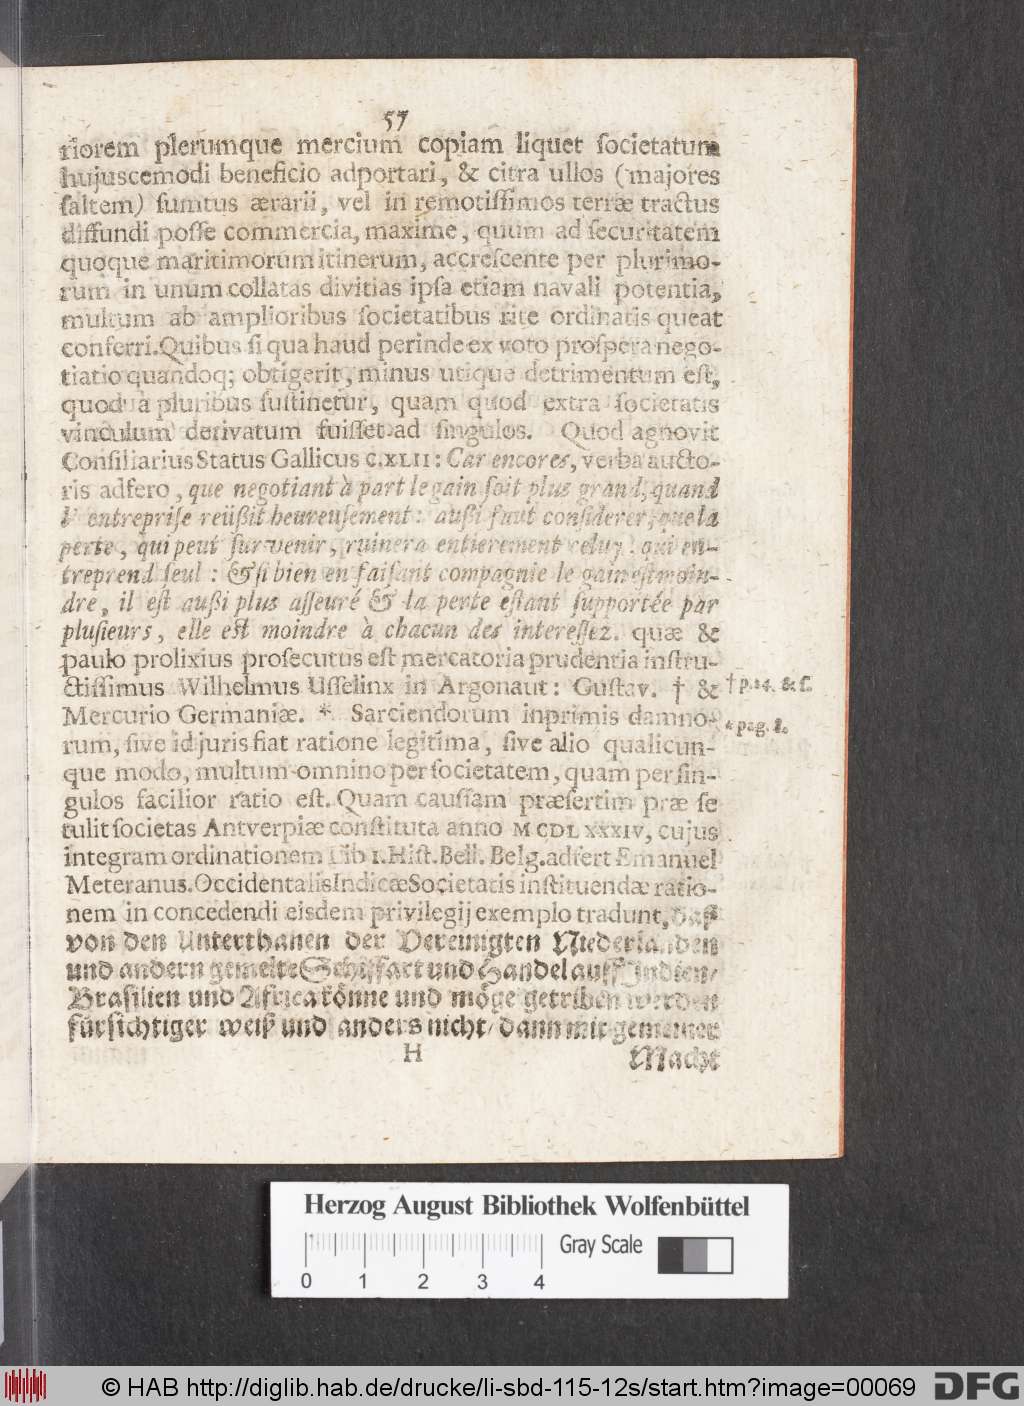 57
riorem plerumque mercium copiam liquet ſocietatum
hujuscemodi beneficio adportari, & citra ullos (majores
ſaltem) ſumtus ærarii, vel in remotiſſimos terræ tractus
diffundi poſſe commercia, maxime, quum ad ſecuritatem
quoque maritimorum itinerum, accreſcente per plurimo-
rum in unum collatas divitias ipſa etiam navali potentia,
multum ab amplioribus ſocietatibus rite ordinatis queat
conferri. Quibus ſi qua haud perinde ex voto proſpera nego-
tiatio quandoq; obtigerit, minus utique detrimentum eſt,
quod à pluribus ſuſtinetur, quam quod extra ſocietatis
vinculum derivatum fuiſſet ad ſingulos. Quod agnovit
Conſiliarius Status Gallicus C. XLII: Car encores, verba aucto-
ris adfero, que negotiant à part le gain ſoit plus grand, quand
l' entrepriſe reüßit heureuſement: außi faut conſiderer, que la
perte, qui peut ſurvenir, ruinera entierement celuy qui en-
treprend ſeul : & ſi bien en faiſant compagnie le gain eſt moin-
dre, il eſt außi plus aſſeuré & la perte eſtant ſupportée par
pluſieurs, elle eſt moindre à chacun des intereſſez. quæ &
paulo prolixius proſecutus eſt mercatoria prudentia inſtru-
ctiſſimus Wilhelmus Uſſelinx in Argonaut: Guſtav. † &
Mercurio Germaniæ. * Sarciendorum inprimis damno-
rum, ſive id juris fiat ratione legitima, ſive alio qualicun-
que modo, multum omnino per ſocietatem, quam per ſin-
gulos facilior ratio eſt. Quam cauſſam præſertim præ ſe
tulit ſocietas Antverpiæ conſtituta anno MCDLXXXIV, cujus
integram ordinationem Lib 1. Hiſt. Bell. Belg. adfert Emanuel
Meteranus. Occidentalis Indicæ Societatis inſtituendæ ratio-
nem in concedendi eisdem privilegij exemplo tradunt, daß
von den Unterthanen der Vereinigten Niederlanden
und andern gemelte Schiffart und Handel auff Indien/
Braſilien und Africa könne und möge getriben werden
fürſichtiger weiß und anders nicht/ dann mit gemeiner
H
Macht
† p. 14. & ſ.
* pag. 8.
Herzog August Bibliothek Wolfenbüttel
0 1 2 3 4
Gray Scale
© HAB http://diglib.hab.de/drucke/li-sbd-115-12s/start.htm?image=00069
DFG